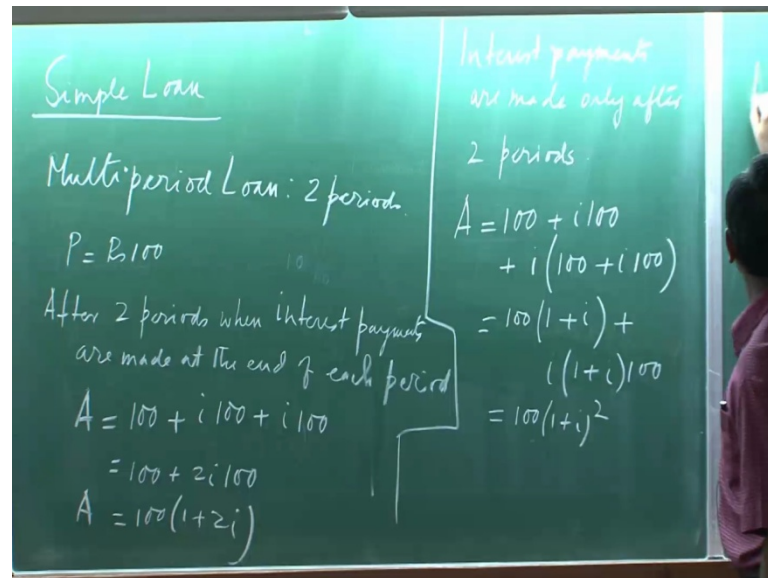 Simple Loan
Multiperiod Loan: 2 periods.
P = Rs100
After 2 periods when interest payments
are made at the end of each period
A = 100 + i100 + i100
= 100 + 2i100
A = 100(1+2i)
Interest payments
are made only after
2 periods.
A = 100 + i100
+ i(100 + i100)
= 100(1+i) +
i(1+i)100
= 100(1+i)²